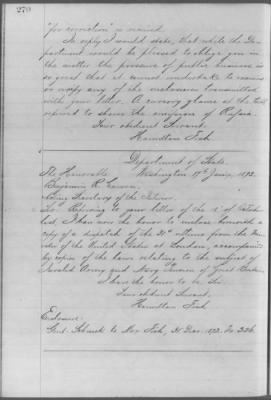 270
"for correction" is received.
In reply I would state, that while the De-
partment would be pleased to oblige you in
the matter the pressure of public business is
so great that it cannot undertake to revise
or copy any of the enclosures transmitted
with your letter. A cursory glance at the
referred to shows the omission of
Your obedient Servant,
Hamilton Fish
Department of State.
Washington 17th Jan'y, 1873.
The Honorable
Benjamin R. Cowen,
Acting Secretary of the Interior.
Sir: Referring to your letter of the of October
last, I have now the honor to enclose herewith a
copy of a dispatch of the 21st ultimo from the Min-
ister of the United States at London, accompanied
by copies of the laws relating to the subject of
Invalid Army and Navy Pensions of Great Britain.
I have the honor to be, Sir,
Your obedient Servant,
Hamilton Fish
Enclosure:
Genl. Schenck to Mr. Fish, 21 Dec. 1872. No. 326